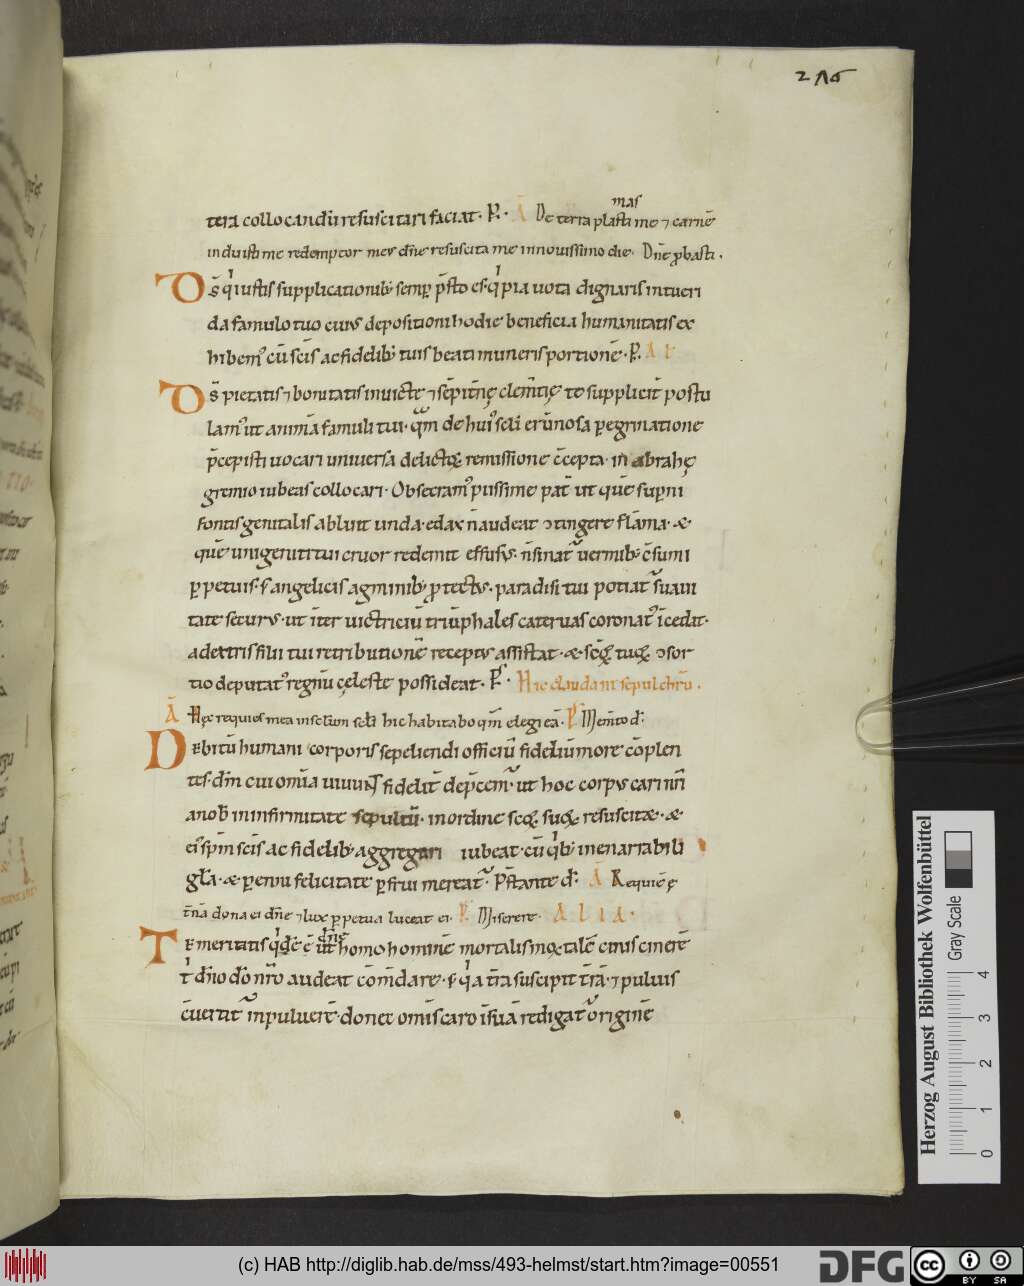 275
mas
tera collocandū resuscitari faciat. P. A De terra plasta me ⁊ carnē
induisti me redemptor meus dn̄e resuscita me in novissimo die. Dn̄e ꝓbasti.
Ds̄ q' iustis supplicationib; semp̲ p̄sto es. q' pia uota dignaris intueri
da famulo tuo cuius depositioni hodie beneficia humanitatis ex
hibem' cū scīs ac fidelib; tuis beati muneris portionē. P. A l
Ds̄ pietatis ⁊ bonitatis inuicte ⁊ sēpitn̄ę clem̄tię te supplicit̄ postu
lam' ut animā famuli tui. qm̄ de hui' sclī erūnosa p̲egrinatione
p̄cepisti uocari uniuersa delictoꝝ remissione c̄cepta. in abrahę
gremio iubeas collocari. Obsecram' piissime pat̄ ut quē sup̲ni
fontis genitalis abluit unda. edax n̄ audeat ɔtingere flām̄a. &
quē unigeniti tui cruor redemit effusus. n̄ sinat' uermib; c̄sumi
p̲petuis. s; angelicis agminib; ꝓtectus. paradisi tui potiat' suaui
tate securus. ut īter uictriciū triūphales cateruas coronat' īcedit.
ad extris filii tui retributionē recepturus assistat. & scōꝝ tuoꝝ ɔsor
tio deputat' regnū cęleste possideat. P. Hic claudant sepulchrū.
A Hęc requies mea in sclūm sclī hic habitabo qm̄ elegi eā. P Mem̄to d'.
Debitū humani corporis sepeliendi officiū fidelium more cōplen
tes. dm̄ cui omīa uiuunt fidelit̄ dep̄cem' ut hoc corpus cari nr̄i
a nob̄ in infirmitate sepultū. in ordine scōꝝ suoꝝ resuscitet. &
ei' sp̄m scīs ac fidelib; aggregari iubeat. cū q'b; inenarrabili
gl̄a. & p̲enni felicitate p̲frui mereat'. P̄stante d'. A Requiē ę
t̄nā dona ei dn̄e ⁊ lux p̲petua luceat ei. P. Miserere. ALIA.
dn̄e
Temeritatis q'dē ē ut homo hominē mortalis mortalē cinis cinerē
t' dn̄o dō nr̄o audeat cōm̄dare. s; q'a t̄ra suscipit t̄rā. ⁊ puluis
c̄uertit' in puluerē. donec omīs caro ī suā redigat' originē
Herzog August Bibliothek Wolfenbüttel
Gray Scale
0 1 2 3 4
(c) HAB http://diglib.hab.de/mss/493-helmst/start.htm?image=00551
DFG
cc BY SA